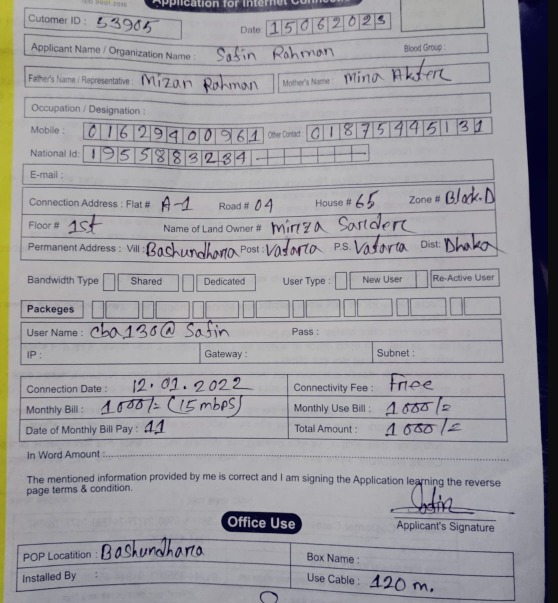 Application for Internet Connec
Cutomer ID : 53905 Date: 15062023
Applicant Name / Organization Name : Safin Rahman Blood Group :
Father's Name / Representative : Mizan Rahman Mother's Name : Mina Akter
Occupation / Designation :
Mobile : 01629400961 Other Contact: 01875445131
National Id: 1955883284
E-mail :
Connection Address : Flat # A-1 Road # 04 House # 65 Zone # Block.D
Floor # 1st Name of Land Owner # Mirza Sarder
Permanent Address : Vill : Bashundhara Post : Vatara P.S. Vatara Dist: Dhaka
Bandwidth Type Shared Dedicated User Type : New User Re-Active User
Packeges
User Name : cba130@Safin Pass :
IP : Gateway : Subnet :
Connection Date : 12.01.2022 Connectivity Fee : Free
Monthly Bill : 1000/= (15 mbps) Monthly Use Bill : 1000/=
Date of Monthly Bill Pay : 11 Total Amount : 1000/=
In Word Amount :
The mentioned information provided by me is correct and I am signing the Application learning the reverse
page terms & condition.
Safin
Applicant's Signature
Office Use
POP Locatition : Bashundhara Box Name :
Installed By : Use Cable : 120 m.